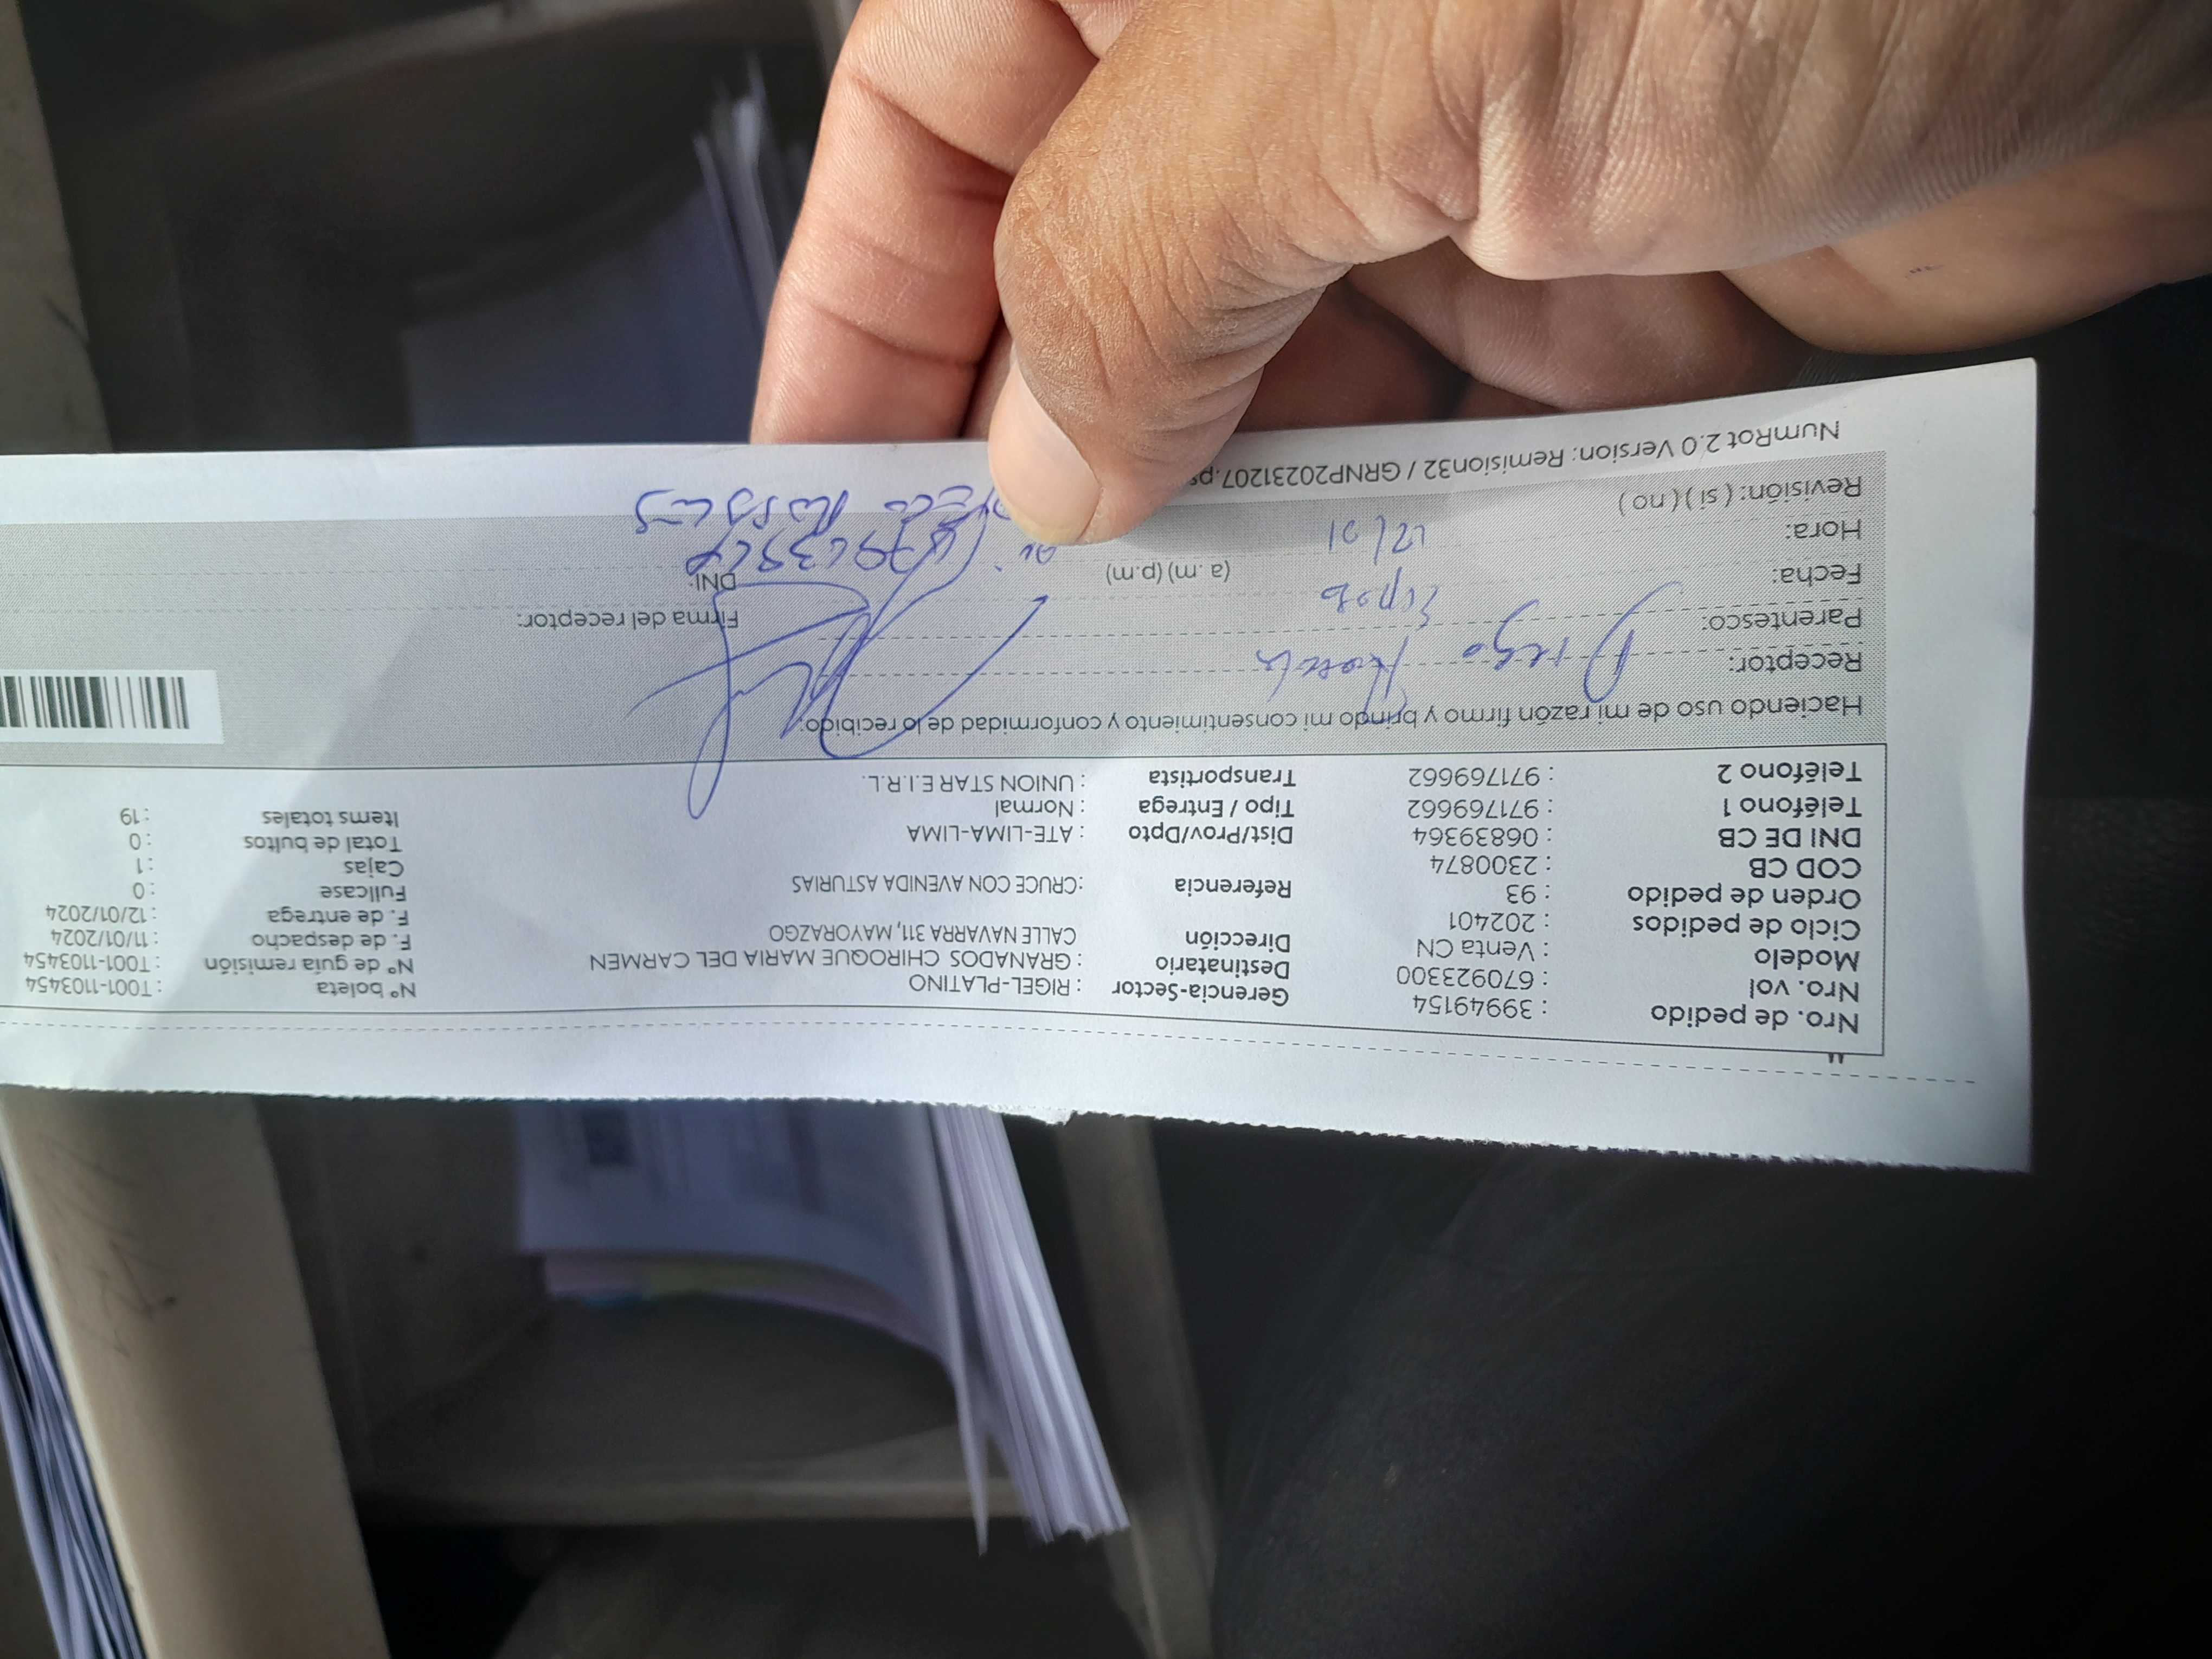 Nro. de pedido : 39949154 Gerencia-Sector : RIGEL-PLATINO Nº boleta : T001-1103454
Nro. vol : 670923300 Destinatario : GRANADOS CHIROQUE MARIA DEL CARMEN Nº de guia remisión : T001-1103454
Modelo : Venta CN Dirección CALLE NAVARRA 311, MAYORAZGO F. de despacho : 11/01/2024
Ciclo de pedidos : 202401 F. de entrega : 12/01/2024
Orden de pedido : 93 Referencia :CRUCE CON AVENIDA ASTURIAS Fullcase : 0
COD CB : 2300874 Cajas : 1
DNI DE CB : 06839364 Dist/Prov/Dpto : ATE-LIMA-LIMA Total de bultos : 0
Teléfono 1 : 971769662 Tipo / Entrega : Normal Items totales : 19
Teléfono 2 : 971769662 Transportista : UNION STAR E.I.R.L.
Haciendo uso de mi razón firmo y brindo mi consentimiento y conformidad de lo recibido:
Receptor: Diego
Parentesco: Firma del receptor:
Fecha: (a. m) (p.m) DNI:
Hora:
Revisión: ( si ) ( no )
NumRot 2.0 Version: Remision32 / GRNP20231207.ps